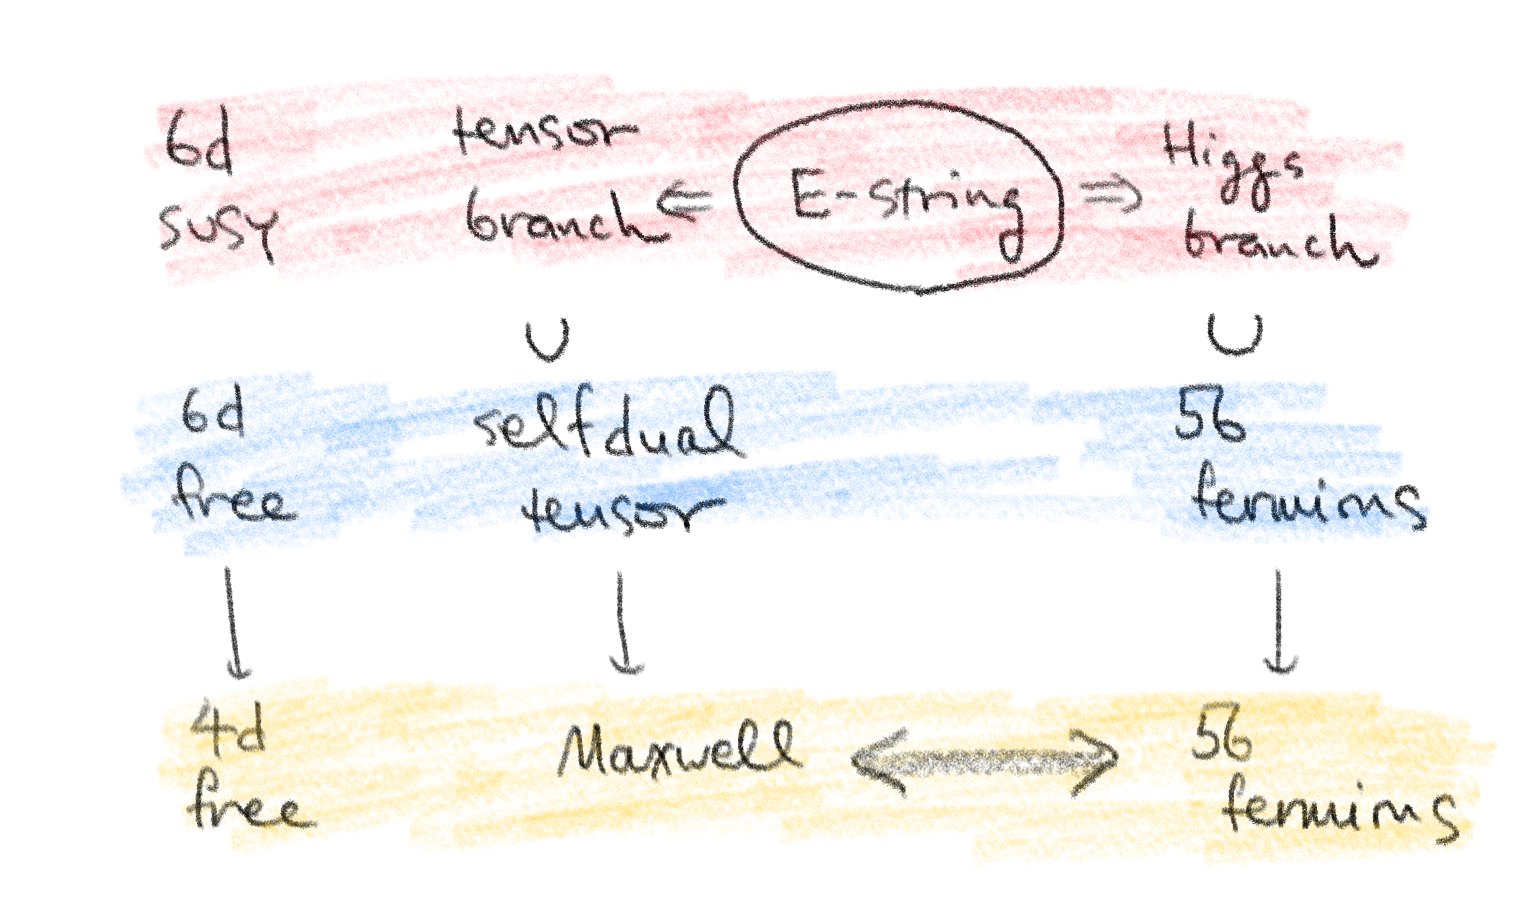 6d
susy
tensor
branch
⇐
E-string
⇒
Higgs
branch
∪
∪
6d
free
selfdual
tensor
56
fermions
↓
↓
↓
4d
free
Maxwell
⟺
56
fermions